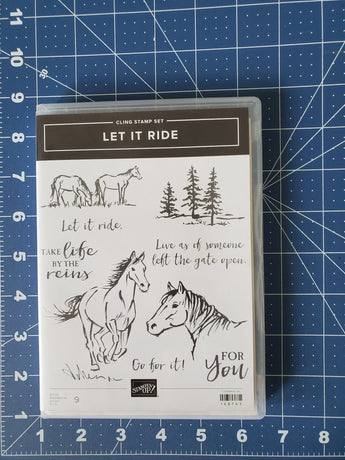 CLING STAMP SET
LET IT RIDE
Let it ride.
TAKE life
BY THE
reins
Live as if someone
left the gate open.
Go for it!
FOR
You
STAMPIN' UP!
9
11
10
9
8
7
6
5
4
3
2
1
1
2
3
4
5
6
7
8